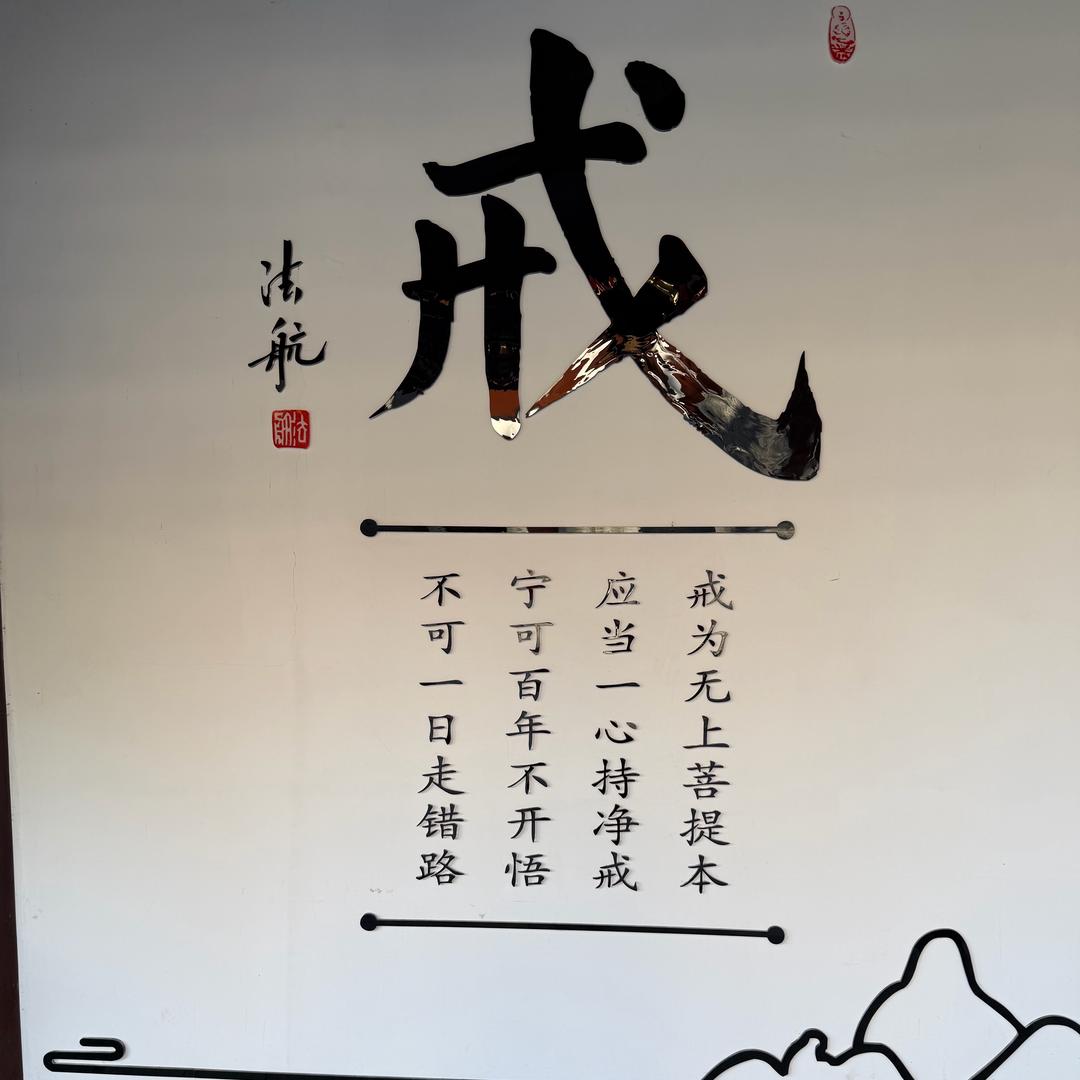 戒
戒为无上菩提本
应当一心持净戒
宁可百年不开悟
不可一日走错路
法航